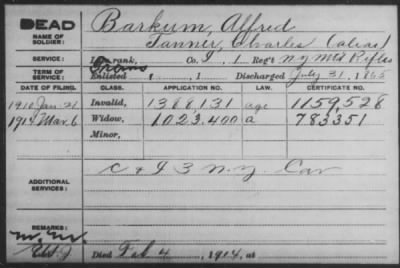 DEAD
NAME OF SOLDIER: Barkum, Alfred
Tanner, Charles (alias)
SERVICE: Late rank, Co. I, 1 Reg't N.Y. Mtd Rifles
TERM OF SERVICE: Enlisted , 1 , Discharged July 31, 1865
DATE OF FILING. CLASS. APPLICATION NO. LAW. CERTIFICATE NO.
1910 Jan. 21 Invalid, 1388,131 age 1159,528
1914 Mar. 6 Widow, 1,023,400 a 783351
Minor,
ADDITIONAL SERVICES: C & I 3 N.Y. Cav
REMARKS:
Died Feb 4, 1914, at